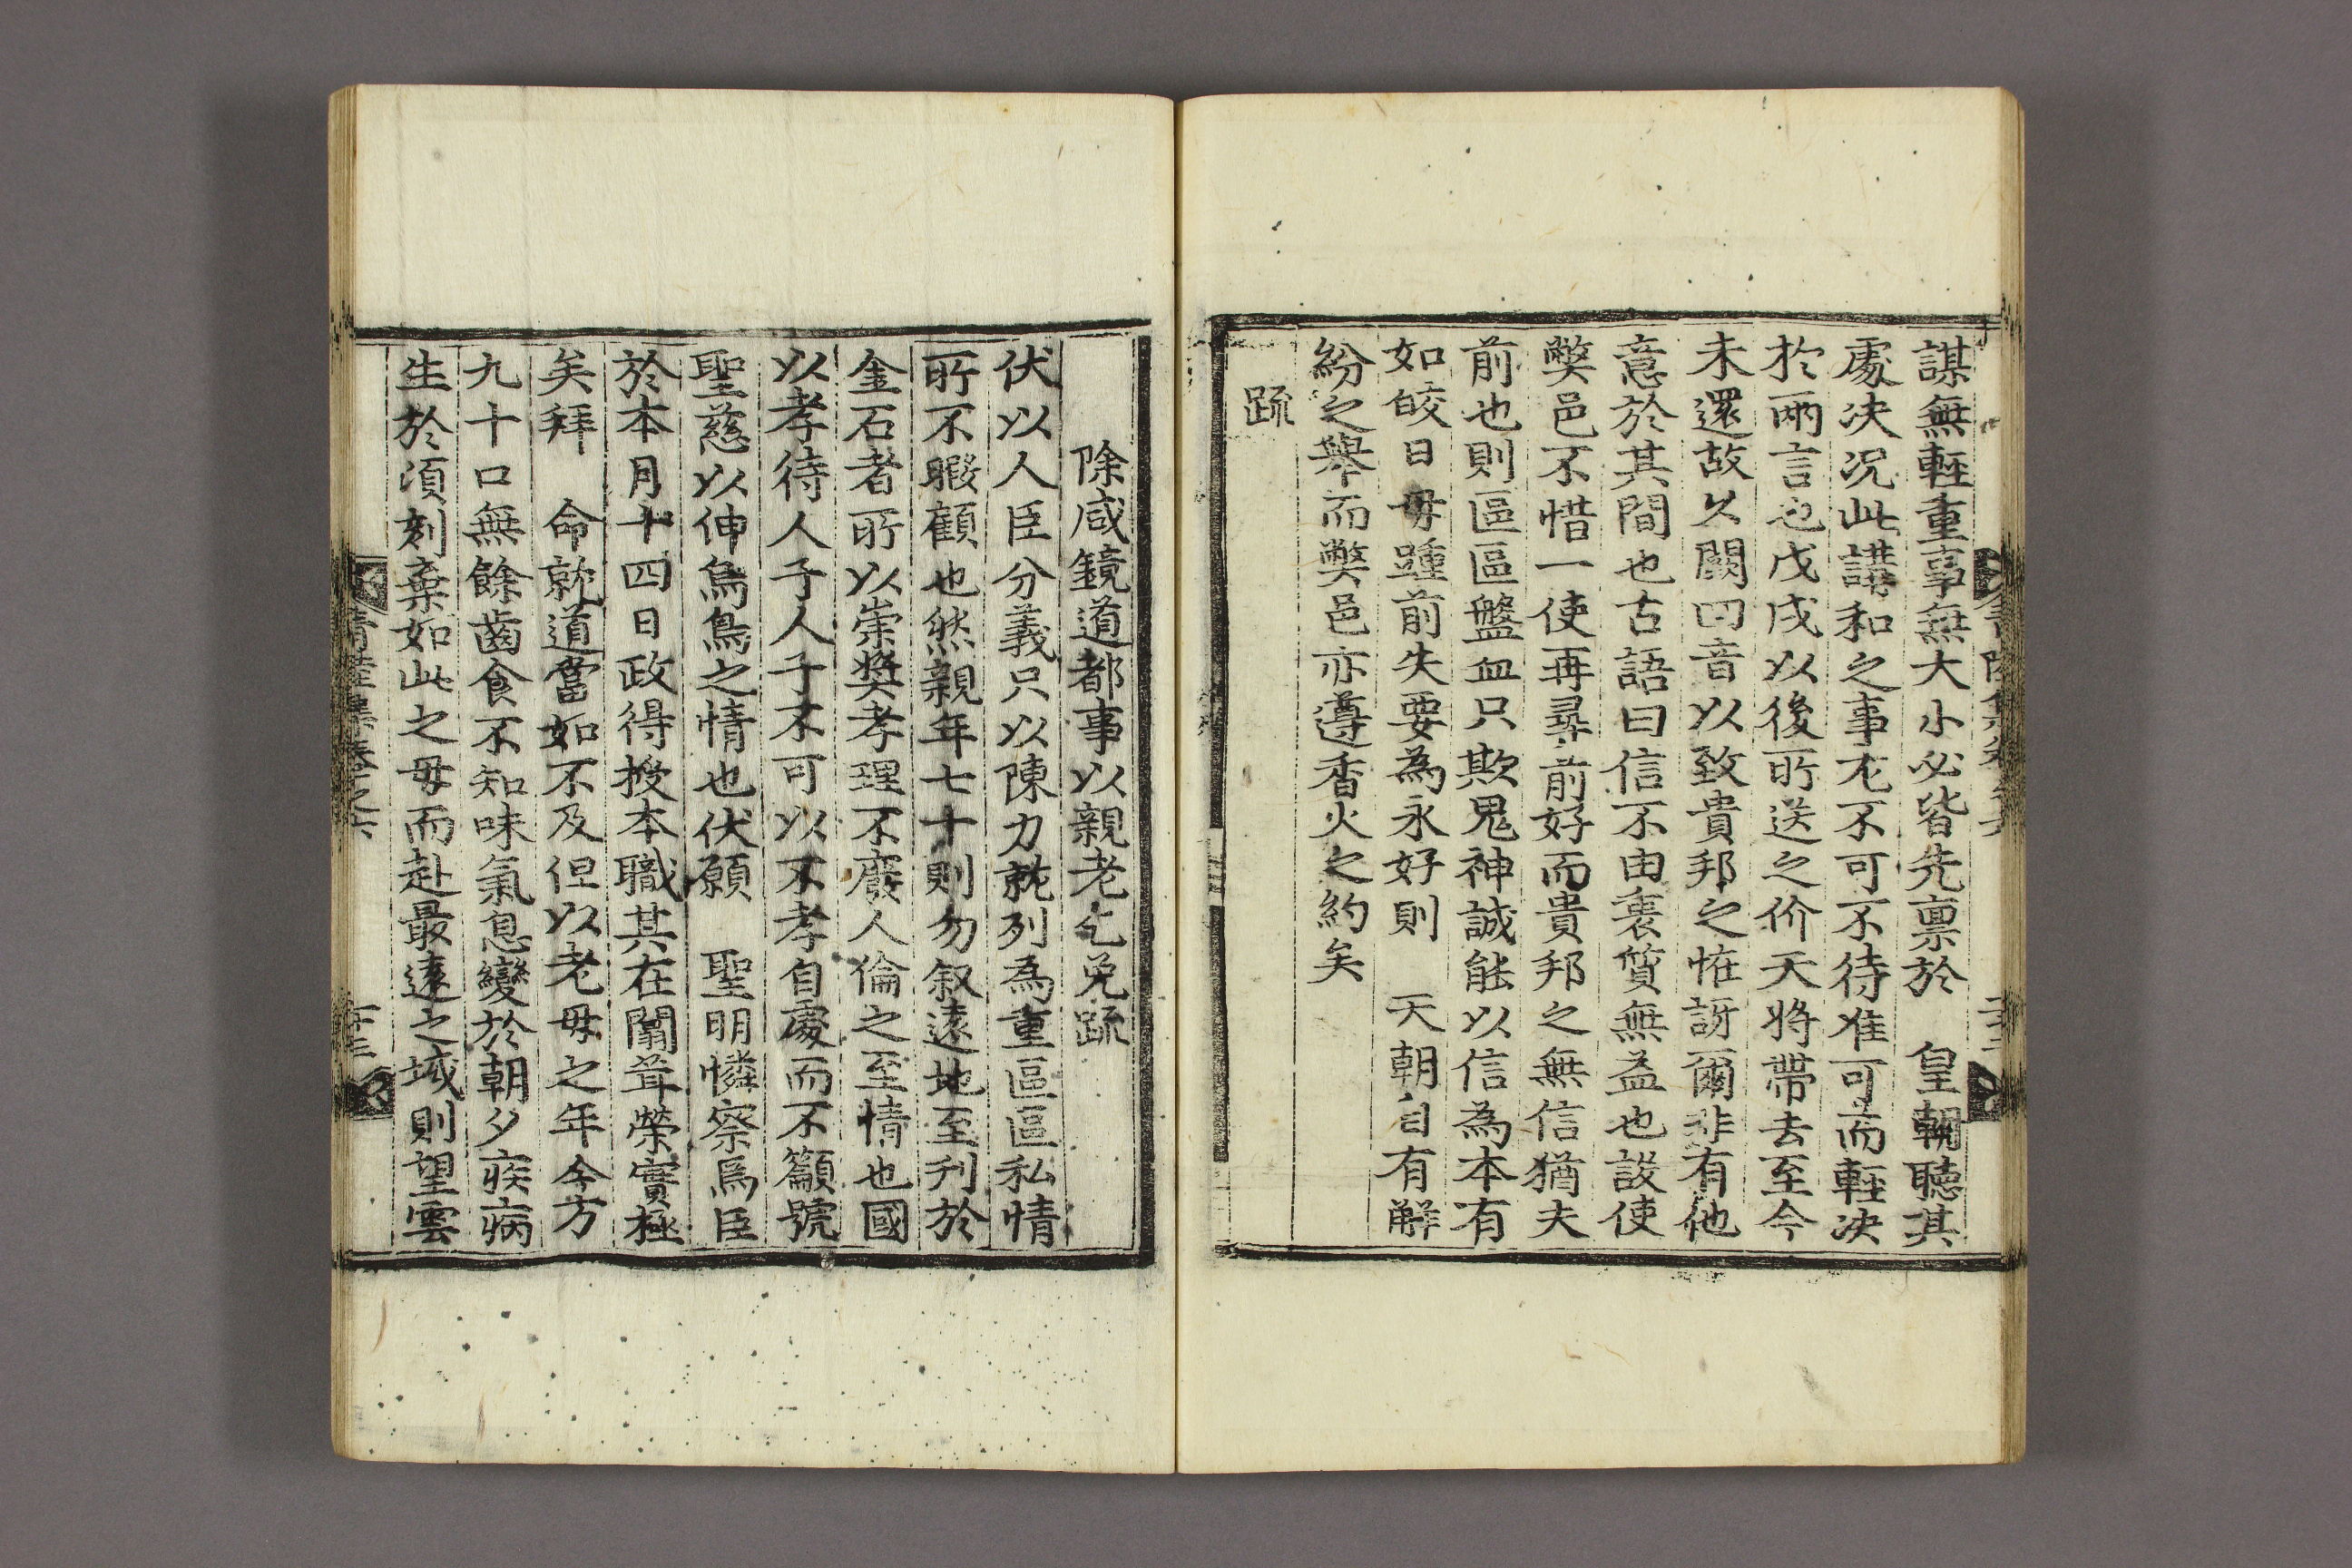 謀無輊重事無大小必皆先禀於　皇朝聽其
處决况此講和之事尤不可不待准可而輊决
於兩言也戊戌以後所送之价天將帶去至今
未還故久闕回音以致貴邦之恠訝爾非有他
意於其間也古語曰信不由裏質無益也設使
獘邑不惜一使再尋前好而貴邦之無信猶夫
前也則區區盤血只欺鬼神誠能以信為本有
如皎日毋踵前失要為永好則　天朝自有解
紛之舉而獘邑亦遵香火之約矣
疏
除咸鏡道都事以親老乞免疏
伏以人臣分義只以陳力就列為重區區私情
所不暇顧也然親年七十則勿叙遠地至刋於
金石者所以崇奬孝理不廢人倫之至情也國
以孝待人子人子不可以不孝自處而不籲號
聖慈以伸烏鳥之情也伏願　聖明憐察焉臣
於本月十四日政得授本職其在闒茸榮實極
矣拜　命就道當如不及但以老毋之年今方
九十口無餘齒食不知味氣息變於朝夕疾病
生於湏刻棄如此之毋而赴最遠之域則望雲
青陸集卷之六
十三